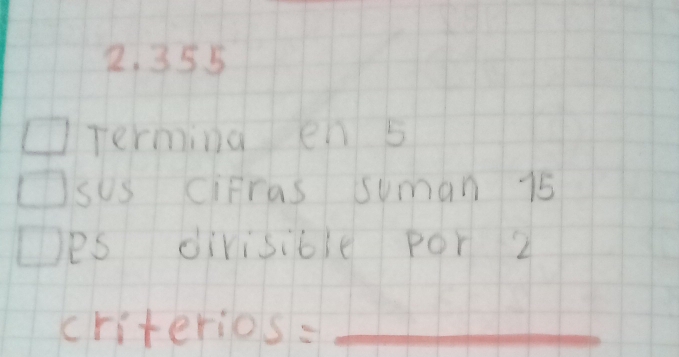 2.355
☐ Termina en 5
☐ sus cifras suman 15
☐ es divisible por 2
criterios = ________